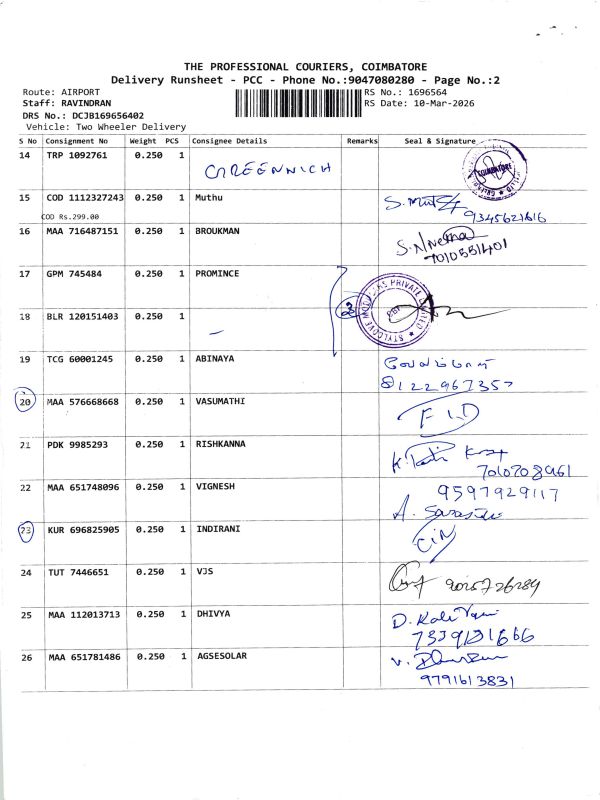 THE PROFESSIONAL COURIERS, COIMBATORE
Delivery Runsheet - PCC - Phone No.:9047080280 - Page No.:2
Route: AIRPORT
RS No.: 1696564
Staff: RAVINDRAN
RS Date: 10-Mar-2026
DRS No.: DCJB169656402
Vehicle: Two Wheeler Delivery
S No Consignment No Weight PCS Consignee Details Remarks Seal & Signature
14 TRP 1092761 0.250 1 GREENNICH COIMBATORE
15 COD 1112327243 0.250 1 Muthu
COD Rs.299.00 9345621616
16 MAA 716487151 0.250 1 BROUKMAN
7010551401
17 GPM 745484 0.250 1 PROMINCE
18 BLR 120151403 0.250 1
19 TCG 60001245 0.250 1 ABINAYA
8122967357
20 MAA 576668668 0.250 1 VASUMATHI
21 PDK 9985293 0.250 1 RISHKANNA
7010708961
22 MAA 651748096 0.250 1 VIGNESH 9597929117
23 KUR 696825905 0.250 1 INDIRANI
24 TUT 7446651 0.250 1 VJS
25 MAA 112013713 0.250 1 DHIVYA
26 MAA 651781486 0.250 1 AGSESOLAR
9791613831